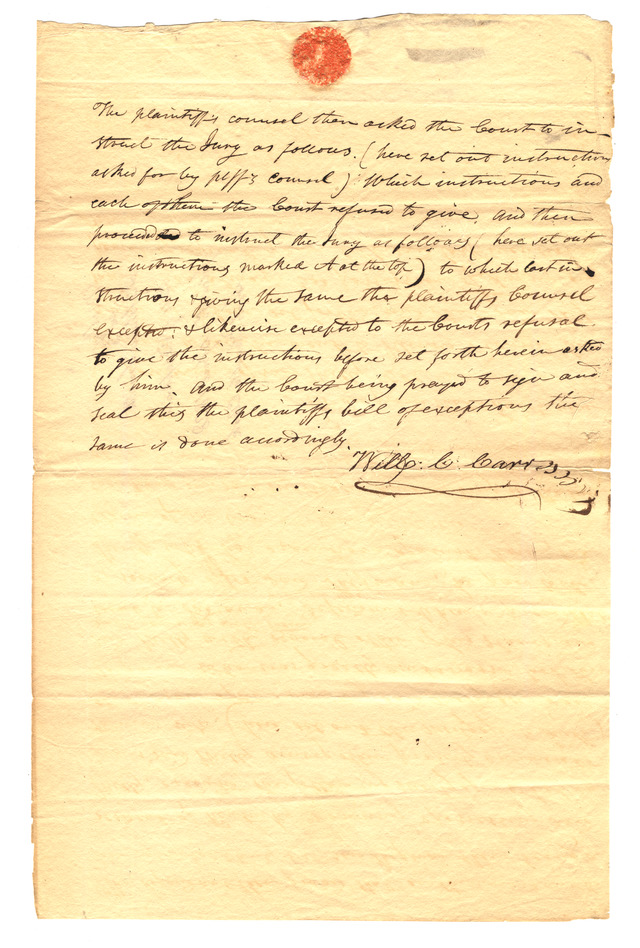 The plaintiffs counsel then asked the Court to in-
struct the Jury as follows. (here set out instruction
asked for by plff's counsel) Which instructions and
each of them the Court refused to give. and then
proceeded to instruct the Jury as follows (here set out
the instructions marked A at the top) to which last in-
structions & giving the same the plaintiffs Counsel
excepts. & likewise excepts to the Courts refusal
to give the instructions before set forth herein asked
by him. And the Court being prayed to sign and
seal this the plaintiffs bill of exceptions the
same is done accordingly.
Will: C. Carr